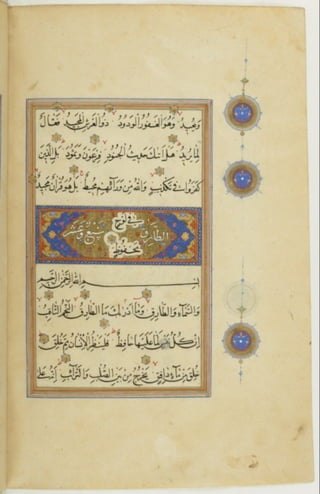 وَيُعِيدُ وَهُوَ الْغَفُورُ الْوَدُودُ ذُو الْعَرْشِ الْمَجِيدُ فَعَّالٌ
لِمَا يُرِيدُ هَلْ أَتٰكَ حَدِيثُ الْجُنُودِ فِرْعَوْنَ وَثَمُودَ بَلِ الَّذِينَ
كَفَرُوا فِي تَكْذِيبٍ وَاللهُ مِنْ وَرَآئِهِمْ مُحِيطٌ بَلْ هُوَ قُرْآنٌ مَجِيدٌ
في لوح
الطارق سبع وعشر
محفوظ
بسم الله الرحمن الرحيم
وَالسَّمَآءِ وَالطَّارِقِ وَمَا أَدْرٰكَ مَا الطَّارِقُ النَّجْمُ الثَّاقِبُ
إِنْ كُلُّ نَفْسٍ لَمَّا عَلَيْهَا حَافِظٌ فَلْيَنْظُرِ الْإِنْسَانُ مِمَّ خُلِقَ
خُلِقَ مِنْ مَآءٍ دَافِقٍ يَخْرُجُ مِنْ بَيْنِ الصُّلْبِ وَالتَّرَآئِبِ إِنَّهُ عَلَى